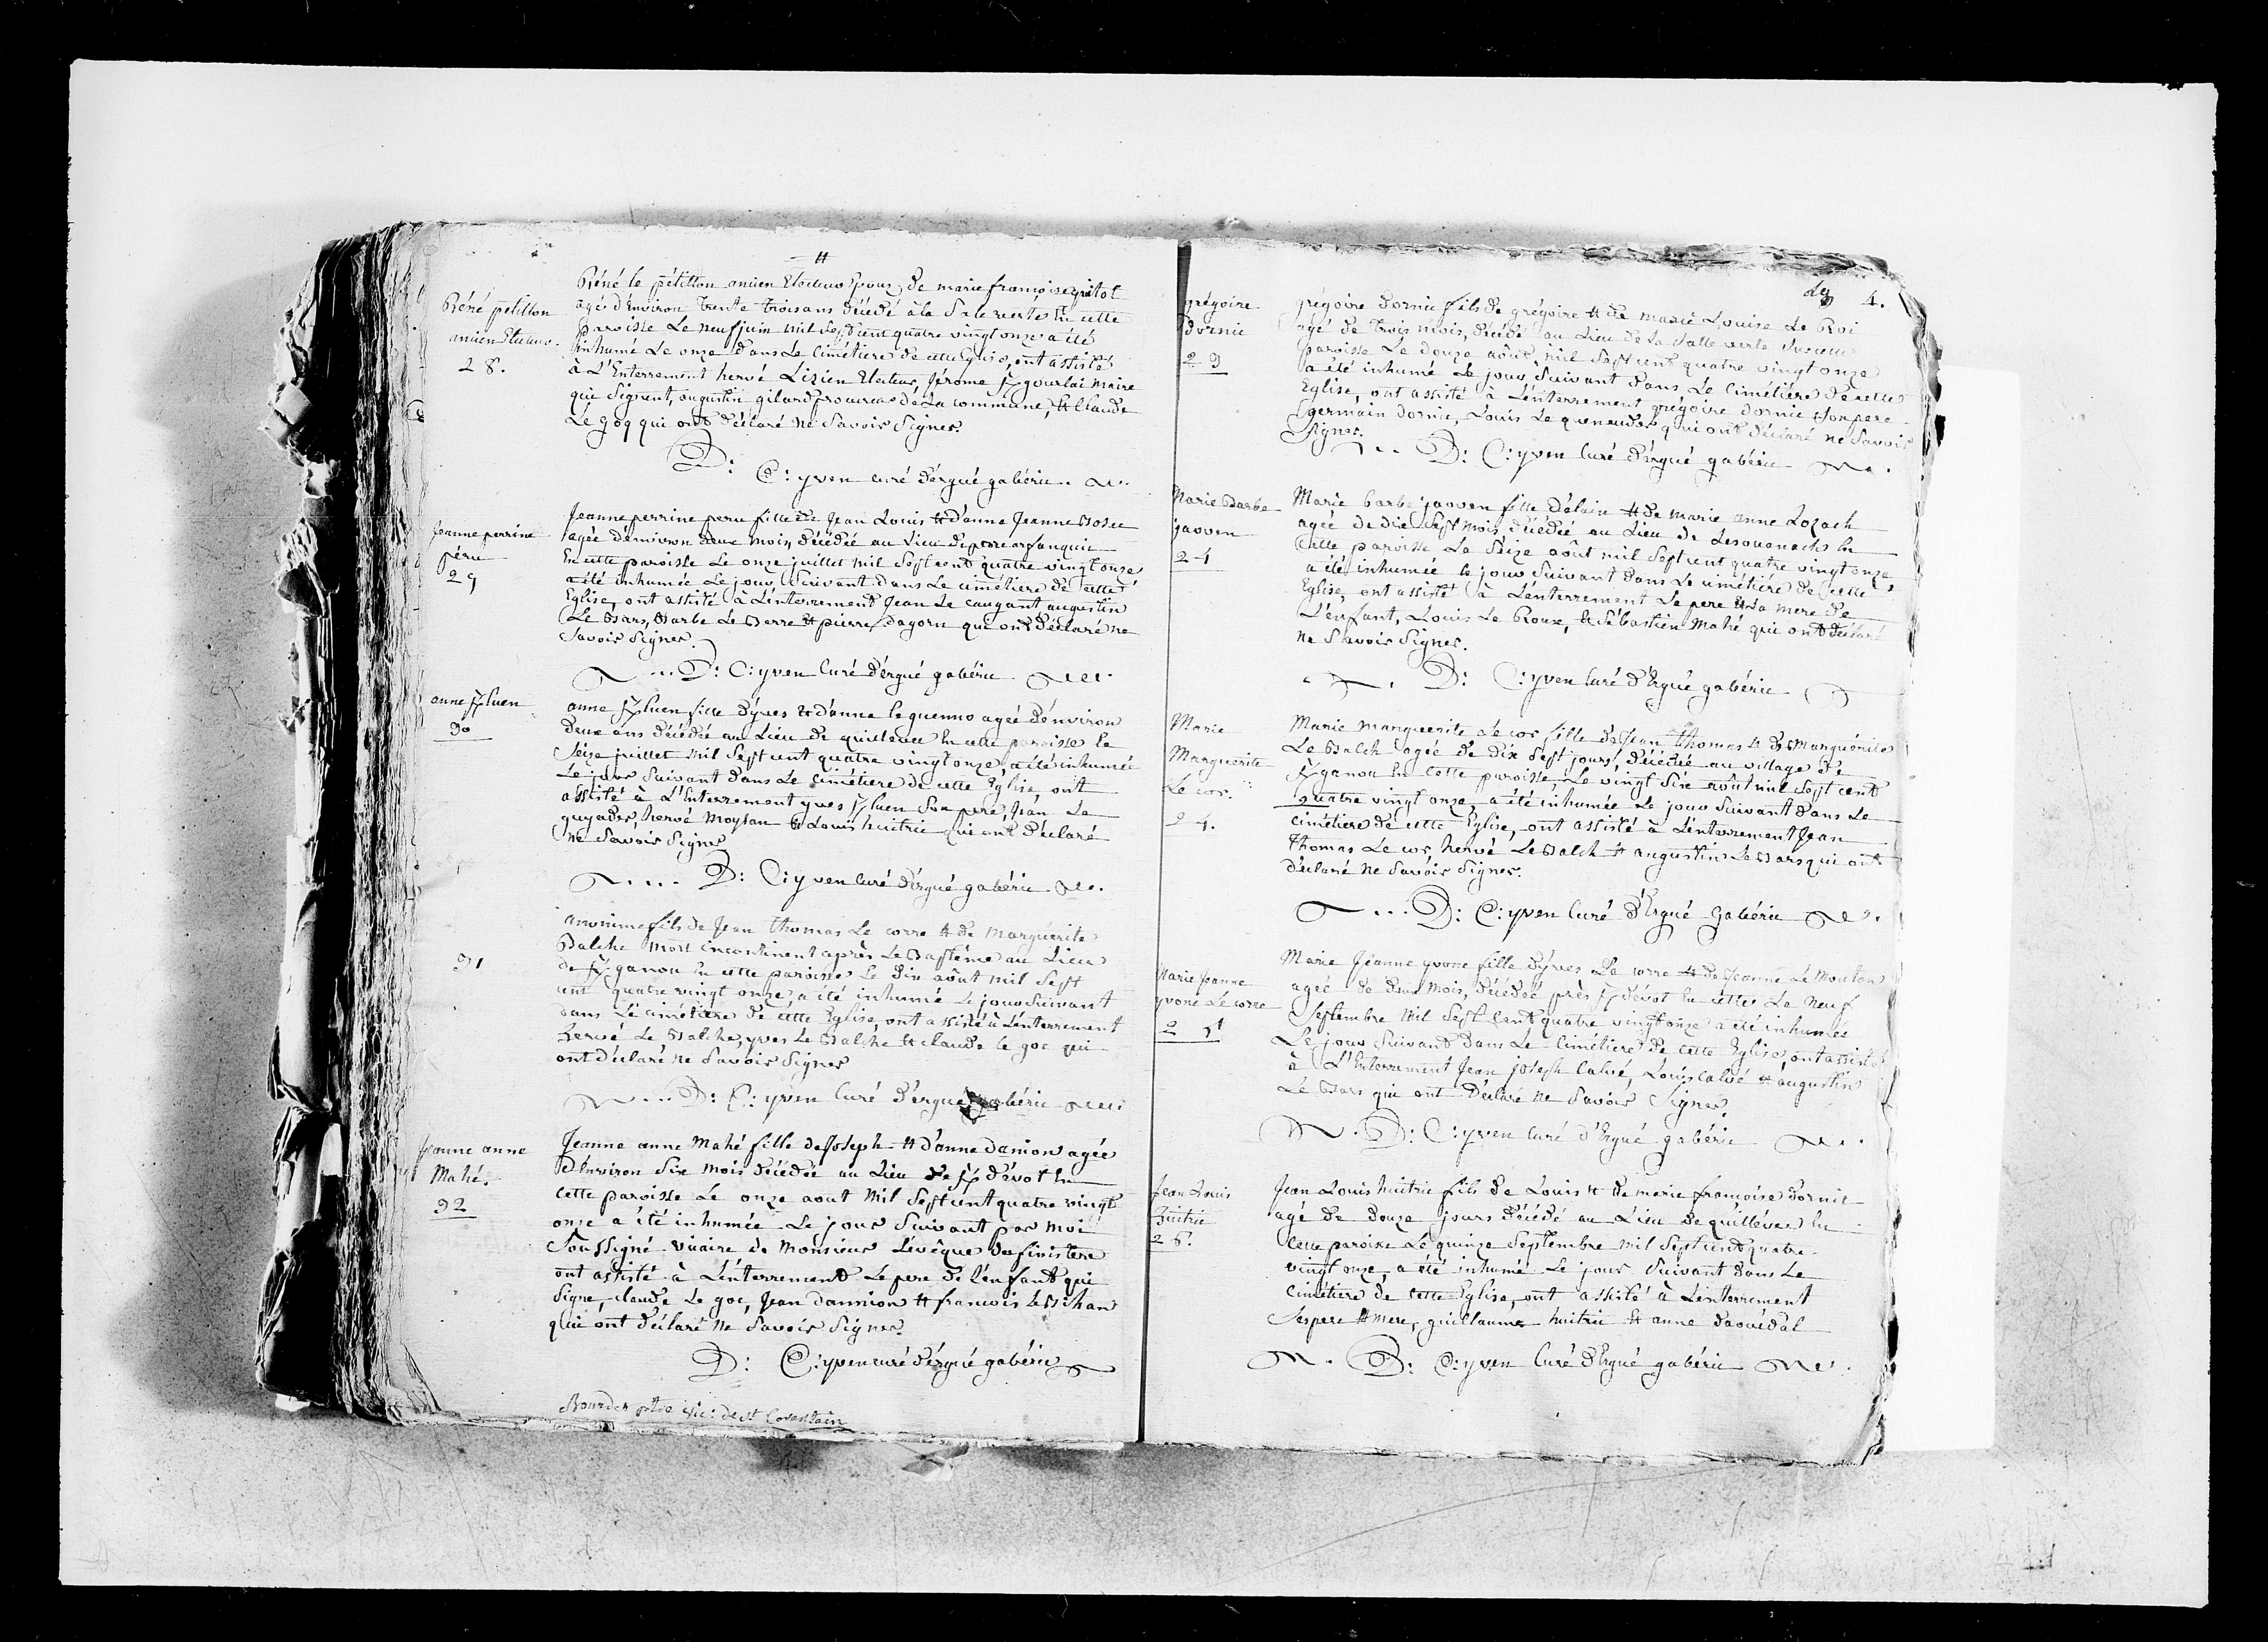 Réné le pétillon ancien Electeur Epoux de marie françoise
agé d'Environ trente trois ans décédé à la Sale verte En cette
paroisse Le neuf juin mil Sept cent quatre vingt onze a été
inhumé Le onze dans Le Cimétiere de cette Eglise, ont assisté
à L'Enterrement hervé Lizien Electeur, Jérome gourlai maire
qui Signent, augustin gilard procureur de La commune, et Claude
Le goq qui ont déclaré ne Savoir Signer.
Réné petillon
ancien Electeur.
28.
D: C: yven curé d'érgué gabéric
Jeanne perrine
péru
29
Jeanne perrine peru fille de Jean Louis et d'anne Jeanne
agée d'environ deux mois, décédée au Lieu de
En cette paroisse Le onze juillet mil Sept cent quatre vingt onze
a été inhumée Le jour Suivant dans Le cimétiere de cette
Eglise, ont assisté à L'énterrement Jean Le caugant augustin
Le Bars, Barbe Le Berre et pierre dagorn qui ont déclaré ne
Savoir Signer.
D: C: yven Curé d'érgué gabéric
anne luen
30
anne luen fille d'yves et d'anne le guenno agée d'environ
deux ans décédée au Lieu de quillévec En cette paroisse le
Seize juillet mil Sept cent quatre vingt onze, a été inhumée
Le jour Suivant dans Le Cimétiere de cette Eglise, ont
assisté à L'Enterrement yves luen Son pere, Jean Le
guyader, hervé moysan et Louis huitric qui ont déclaré
ne Savoir Signer
D: C: yven Curé d'érgué gabéric
31
anonime fils de Jean thomas Le corre et de marguerite
Balche mort incontinent après Le Baptême au Lieu
de ganou En cette paroisse Le dix août mil Sept
cent quatre vingt onze, a été inhumé Le jour Suivant
dans Le cimétiere de cette Eglise, ont assisté à L'énterrement
hervé Le Balche, yves Le Balche et claude le goc qui
ont déclaré ne Savoir Signer
D: C: yven Curé d'érgué gabéric
Jeanne anne
Mahé.
32
Jeanne anne Mahé fille de Joseph et d'anne danion agée
D'environ Six mois décédée au Lieu de dévot En
cette paroisse Le onze aout mil Sept cent quatre vingt
onze a été inhumée Le jour Suivant par moi
Soussigné vicaire de Monsieur L'évêque du finistere
ont assisté à L'énterrement Le pere de l'enfant qui
Signe, claude Le goc, Jean dannion et francois Le Bihan
qui ont déclaré ne Savoir Signer.
D: C: yven curé d'érgué gabéric
Bourdon ptre vic: de st Corentain
4.
grégoire
dornic
23
grégoire dornic fils de grégoire et de marie Louise Le Roi
agé de trois mois, décédé au Lieu de La Salle verte
paroisse Le douze août mil Sept cent quatre vingt onze
a été inhumé Le jour Suivant dans Le Cimétiere de cette
Eglise, ont assisté à L'énterrement grégoire dornic Son pere
germain dornic, Louis Le queneuder qui ont déclaré ne Savoir
Signer.
D: C: yven Curé d'érgué gabéric
Marie Barbe
jaoven
24
Marie barbe jaoven fille d'alain et de marie anne Lozach
agée de dix Sept mois, décédée au Lieu de Lesouanach En
Cette paroisse Le Seize août mil Sept cent quatre vingt onze,
a été inhumée le jour Suivant dans Le cimétiere de cette
Eglise, ont assisté à L'énterrement Le pere et La mere de
L'énfant, Louis Le Roux, et Sébastien Mahé qui ont déclaré
ne Savoir Signer.
D: C: yven Curé d'Ergué gabéric
Marie
Marguerite
Le cor.
24.
Marie marguerite Le cor fille de Jean thomas et de Marguérite
Le Balch agée de dix Sept jours, décédée au village de
ganou En Cette paroisse, Le vingt Six août mil Sept cent
quatre vingt onze, a été inhumée Le jour Suivant dans Le
cimétiere de cette Eglise, ont assisté à L'énterrement Jean
thomas Le cor, hervé Le Balch et augustin Le Bars qui ont
déclaré ne Savoir Signer.
D: C: yven Curé d'Ergué gabéric
Marie Jeanne
yvone Le corre
Marie Jeanne yvone fille d'yves Le corre et de Jeanne Le Moutan
agée de deux mois, décédée près dévot En cette Le neuf
Septembre mil Sept Cent quatre vingt onze a été inhumée
Le jour Suivant dans Le Cimétiere de cette Eglise, ont assisté
à L'Enterrement Jean joseph Calvé, Louis Calvé et augustin
Le Bars qui ont déclaré ne Savoir Signer.
D: C: yven Curé d'Ergué gabéric
Jean Louis
huitric
26.
Jean Louis huitric fils de Louis et de marie françoise dornic
agé de douze jours décédé au Lieu de quillévec En
Cette paroisse Le quinze Septembre mil Sept cent quatre
vingt onze, a été inhumé Le jour Suivant dans Le
Cimétiere de cette Eglise, ont assisté à L'énterrement
Ses pere et mere, guillaume huitric et anne daouédal
D: C: yven Curé d'Ergué gabéric